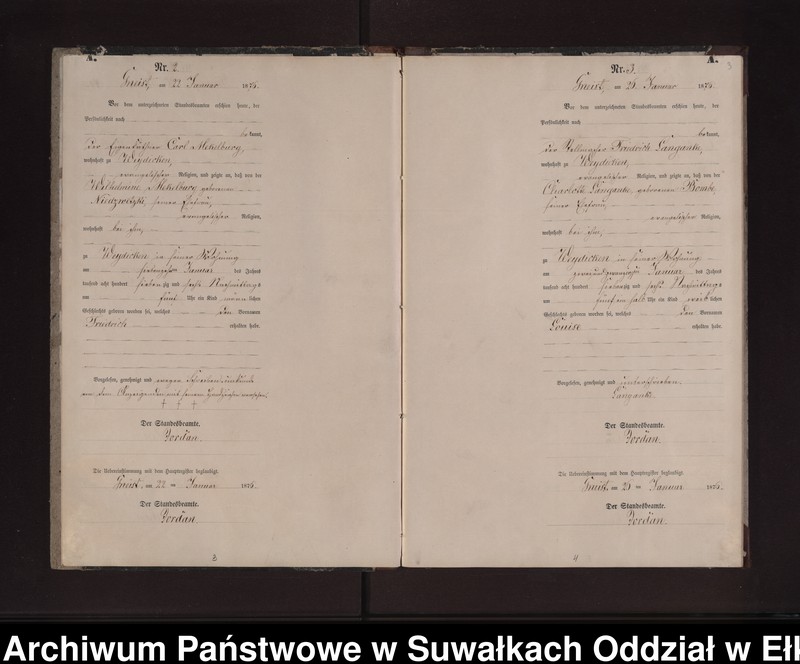 A.
Nr. 2
am 22 Januar 1876
Vor dem unterzeichneten Standesbeamten erschien heute, der
Persönlichkeit nach
bekannt,
der Eigenkäthner Carl Mekelburg,
wohnhaft zu Weydicken,
evangelischer Religion, und zeigte an, daß von der
Wilhelmine Mekelburg geborenen
seiner Ehefrau,
evangelischer Religion,
wohnhaft bei ihm,
zu Weydicken in seiner Wohnung
am Januar des Jahres
tausend acht hundert siebenzig und sechs Nachmittags
um fünf Uhr ein Kind männlichen
Geschlechts geboren worden sei, welches den Vornamen
Friedrich erhalten habe.
Vorgelesen, genehmigt und wegen
von dem Anzeigenden mit seinem Handzeichen versehen.
+ + +
Der Standesbeamte.
Jordan.
Die Uebereinstimmung mit dem Hauptregister beglaubigt.
am 22 ten Januar 1876.
Der Standesbeamte.
Jordan
3
A.
3
Nr. 3.
am Januar 1876
Vor dem unterzeichneten Standesbeamten erschien heute, der
Persönlichkeit nach
bekannt,
der Friedrich Langanke,
wohnhaft zu Weydicken,
evangelischer Religion, und zeigte an, daß von der
Charlotte Langanke, geborenen
seiner Ehefrau,
evangelischer Religion,
wohnhaft bei ihm,
zu Weydicken in seiner Wohnung
am Januar des Jahres
tausend acht hundert siebenzig und sechs Nachmittags
um Uhr ein Kind weiblichen
Geschlechts geboren worden sei, welches den Vornamen
Louise erhalten habe.
Vorgelesen, genehmigt und unterschrieben.
Langanke.
Der Standesbeamte.
Jordan.
Die Uebereinstimmung mit dem Hauptregister beglaubigt.
am ten Januar 1876.
Der Standesbeamte.
Jordan.
4
Archiwum Państwowe w Suwałkach Oddział w Ełk